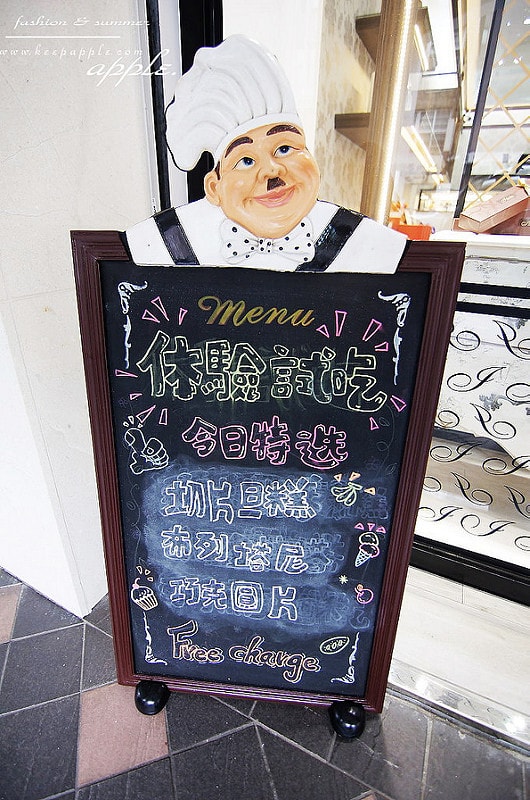 fashion & summer
www.keepapple.com
apple.
Menu
体驗試吃
今日特選
切片蛋糕
布列塔尼
巧克圓片
Free charge